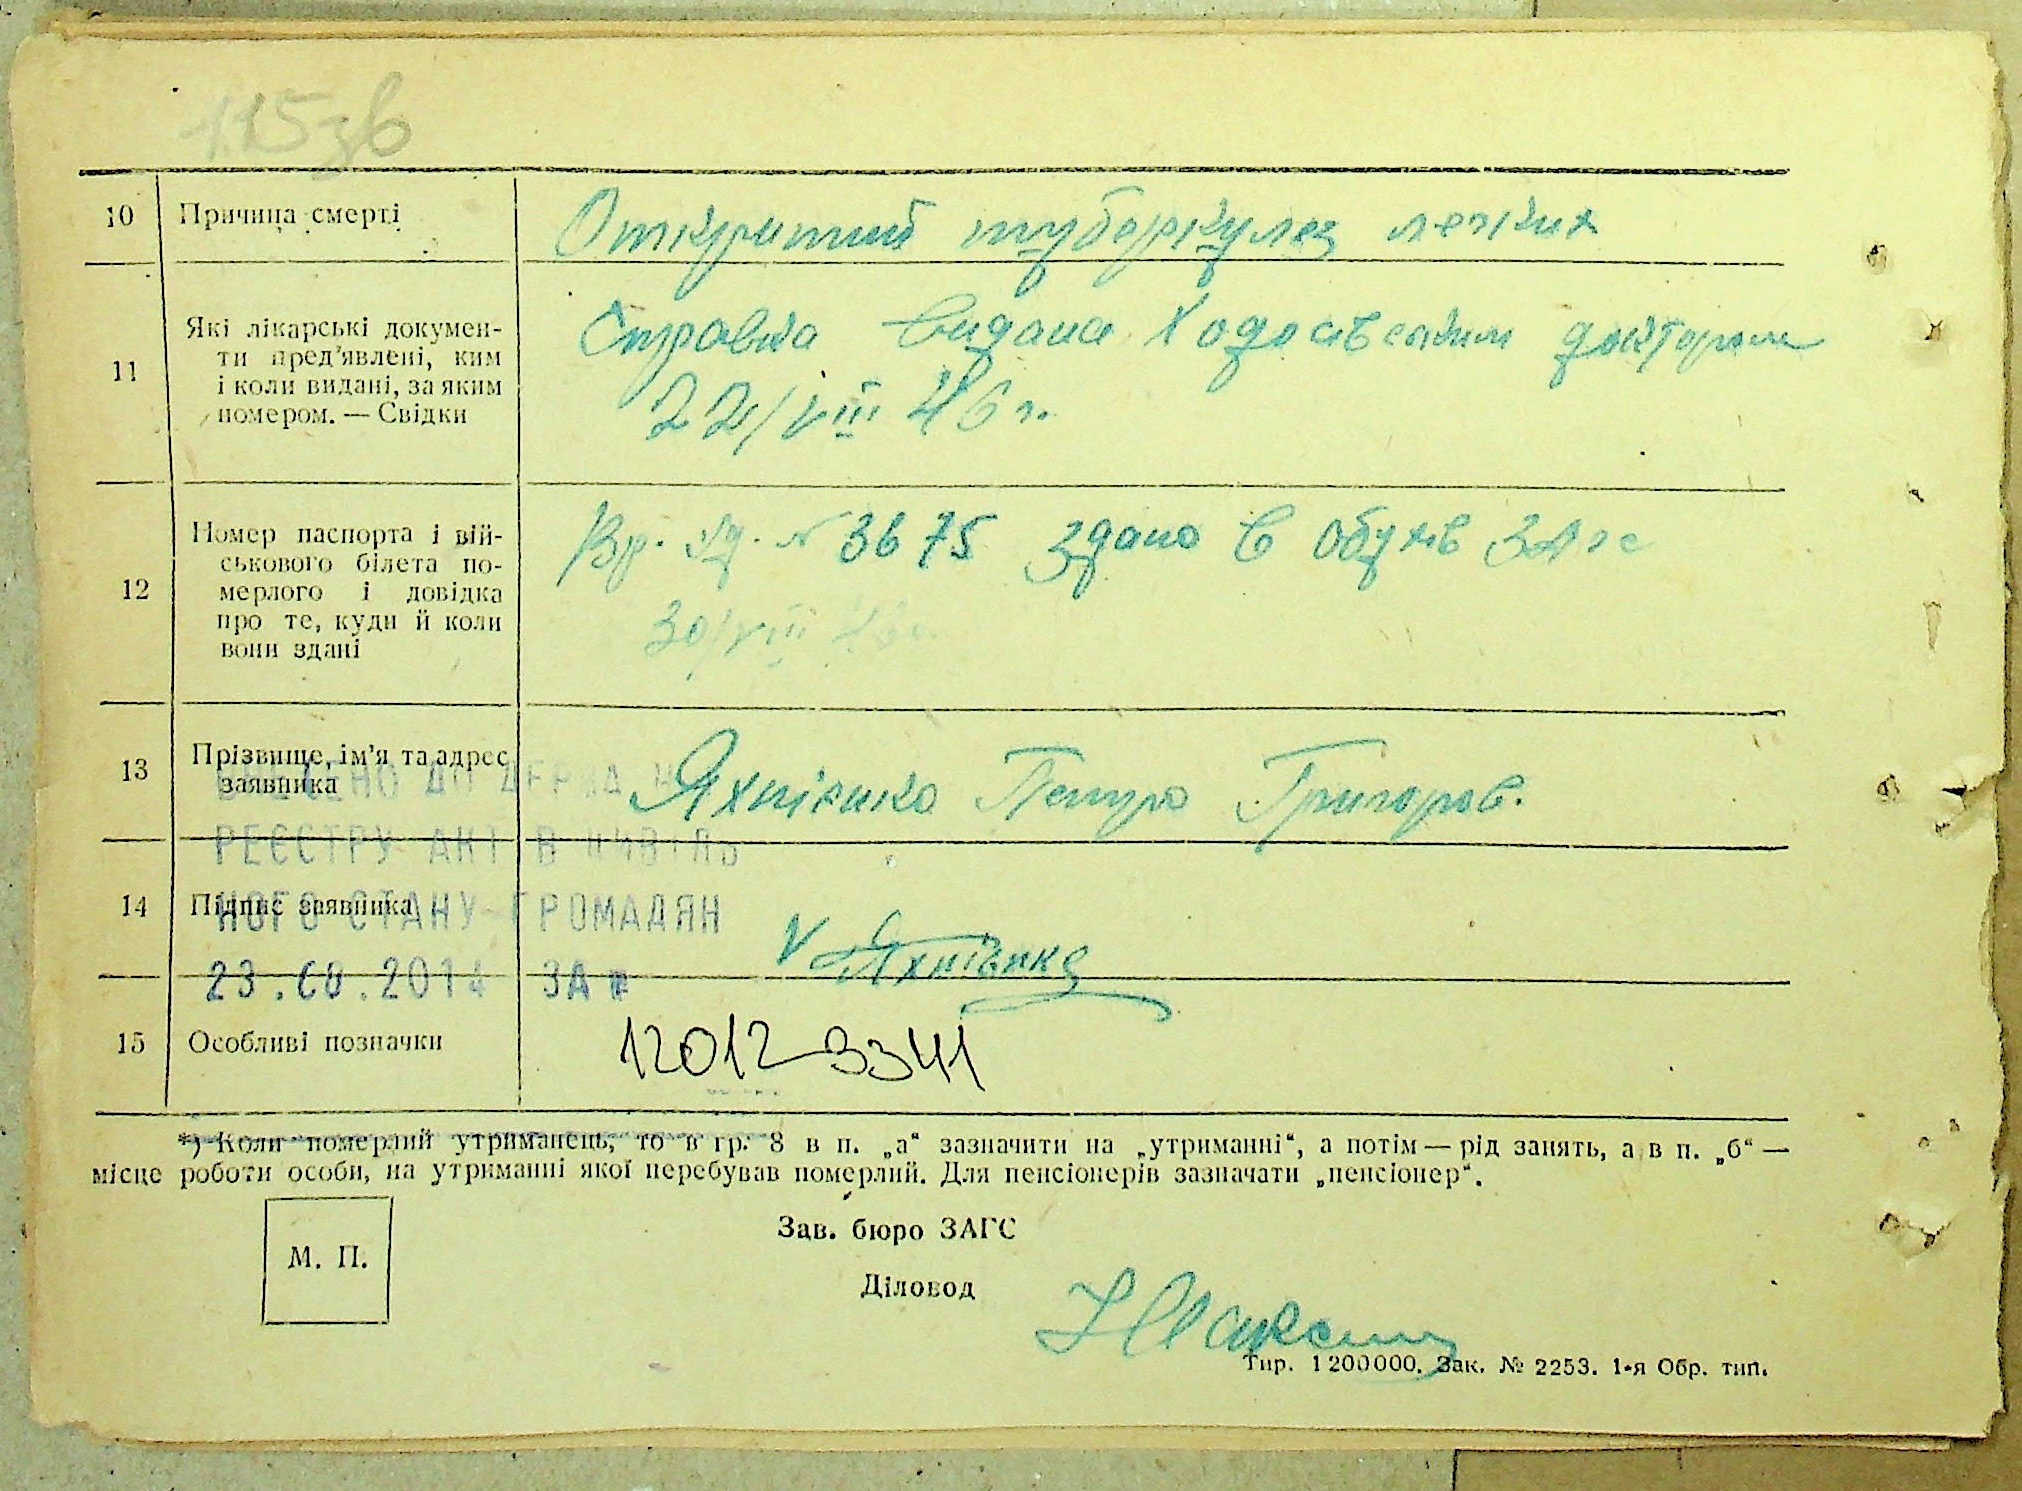 115зв
10 Причина смерті Открытий туборкулез легких
11 Які лікарські докумен-
ти пред'явлені, ким
і коли видані, за яким
номером. — Свідки
Справка видана Ходосівським доктором
22/VIII 46 г.
12 Номер паспорта і вій-
ськового білета по-
мерлого і довідка
про те, куди й коли
вони здані
Вр. уд. № 3675 здано в Обухів Загс
30/VIII 46г.
13 Прізвище, ім'я та адрес
заявника
Яхнієнко Петро Григоров.
ВНЕСЕНО ДО ДЕРЖАВН
РЕЄСТРУ АКТ В ЦИВІЛЬ
14 Підпис заявника
НОГО СТАНУ ГРОМАДЯН
V Яхнієнко
23. .2014 ЗА №
15 Особливі позначки 12012 3341
*) Коли померлий утриманець, то в гр. 8 в п. „а“ зазначити на „утриманні“, а потім — рід занять, а в п. „б“ —
місце роботи особи, на утриманні якої перебував померлий. Для пенсіонерів зазначати „пенсіонер“.
Зав. бюро ЗАГС
М. П.
Діловод
Тир. 1200000. Зак. № 2253. 1-я Обр. тип.